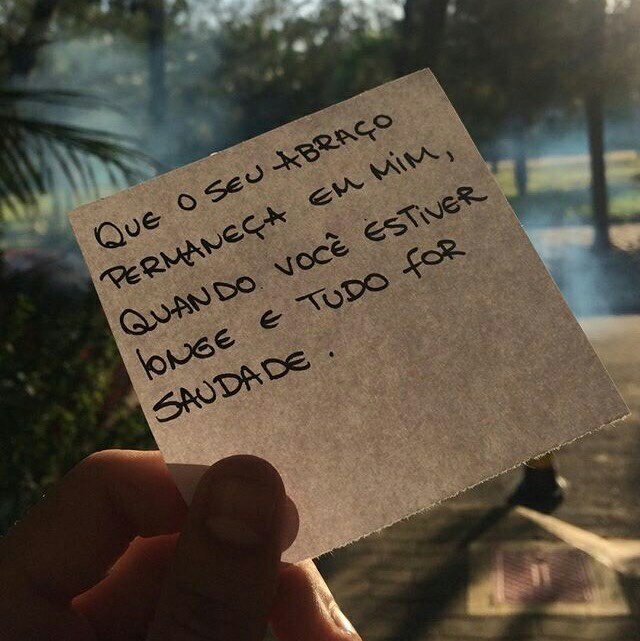 QUE O SEU ABRAÇO
PERMANEÇA EM MIM,
QUANDO VOCÊ ESTIVER
LONGE E TUDO FOR
SAUDADE.